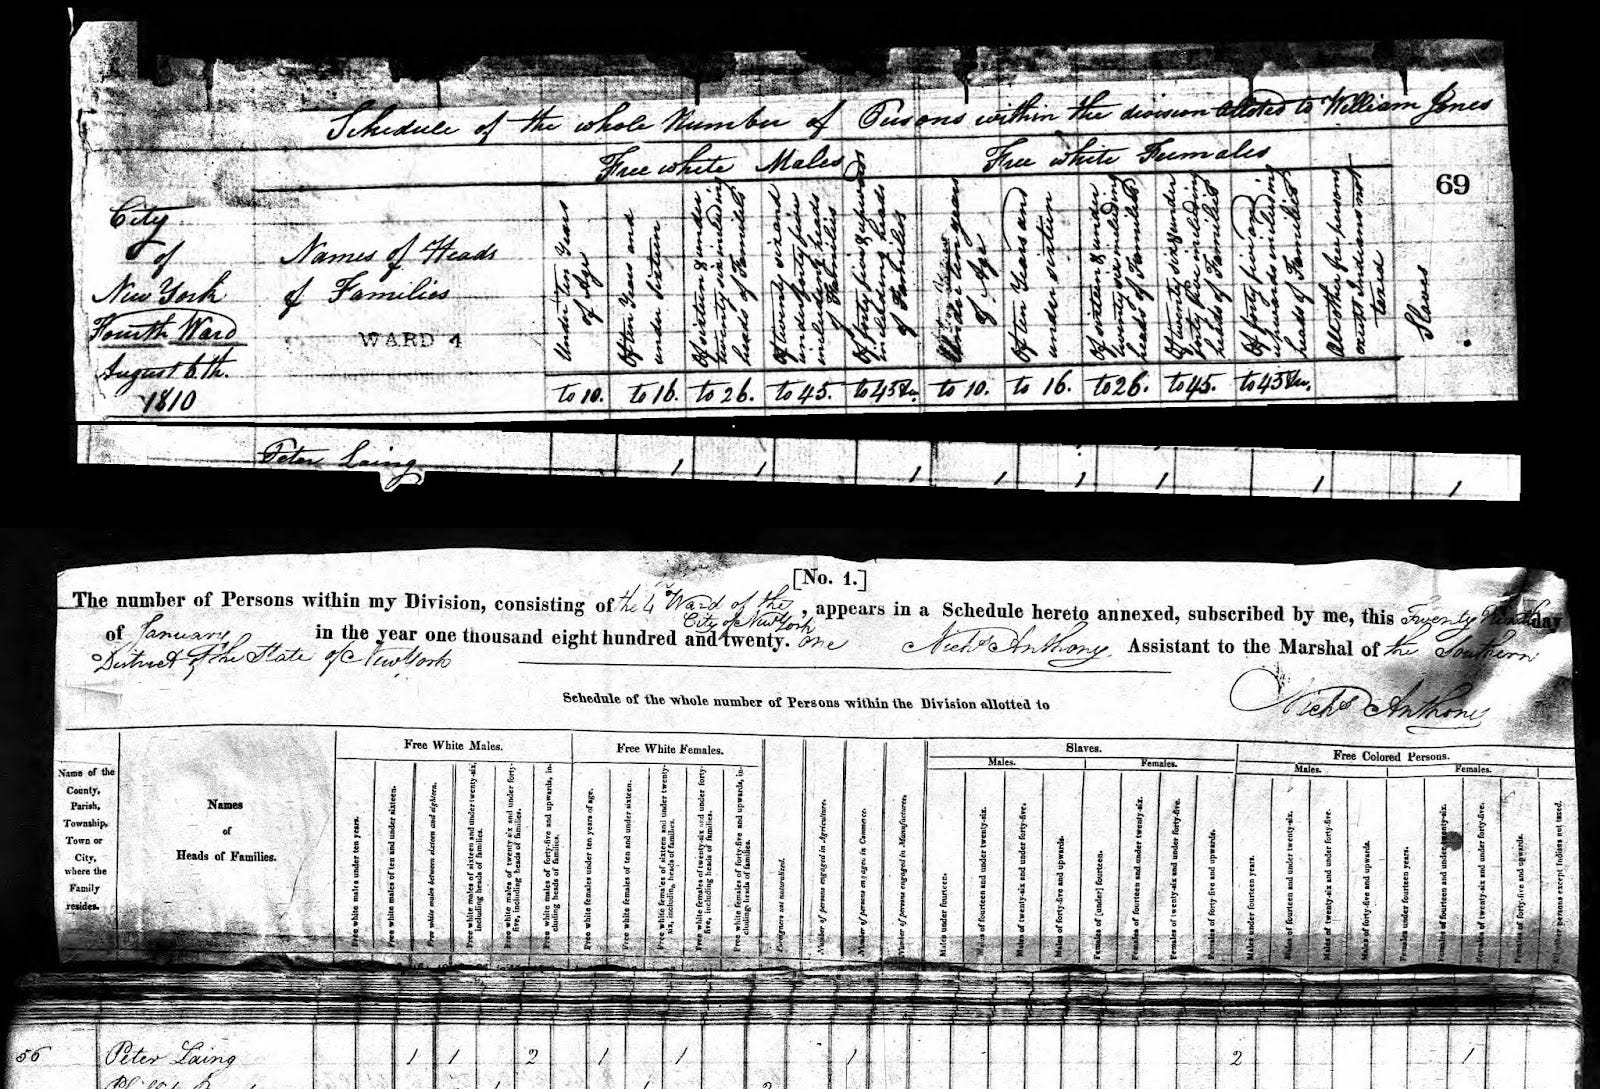 Schedule of the whole Number of Persons within the division allotted to William Jones
Free white Males
Free white Females
69
City
of
New York
Fourth Ward
August 6th.
1810
Names of Heads
of Families
WARD 4
Under Ten Years
of Age
Of ten Years and
under sixteen
Of sixteen & under
twenty six including
heads of Families
Of twenty six and
under forty five
including heads
of Families
Of forty five & upwards
including heads
of Families
Under ten years
of Age
Of ten Years and
under sixteen
Of sixteen & under
twenty six including
heads of Families
Of twenty six & under
forty five including
heads of Families
Of forty five and
upwards including
heads of Families
All other free persons
except Indians not
taxed
Slaves
to 10. to 16. to 26. to 45. to 45 &c. to 10. to 16. to 26. to 45. to 45 &c.
Peter Laing 1 1 1 1 1 1 1 1
[No. 1.]
The number of Persons within my Division, consisting of the 4th Ward of the City of New York, appears in a Schedule hereto annexed, subscribed by me, this Twenty Ninth day
of January in the year one thousand eight hundred and twenty. one Nichs Anthony Assistant to the Marshal of the Southern
District of the State of New York
Schedule of the whole number of Persons within the Division allotted to
Nichs Anthony
Name of the
County,
Parish,
Township,
Town or
City,
where the
Family
resides.
Names
of
Heads of Families.
Free White Males.
Free white males under ten years.
Free white males of ten and under sixteen.
Free white males between sixteen and eighteen.
Free white males of sixteen and under twenty-six,
including heads of families.
Free white males of twenty six and under forty-
five, including heads of families.
Free white males of forty-five and upwards, in-
cluding heads of families.
Free White Females.
Free white females under ten years of age.
Free white females of ten and under sixteen.
Free white females of sixteen and under twenty-
six, including heads of families.
Free white females of twenty-six and under forty-
five, including heads of families.
Free white females of forty-five and upwards, in-
cluding heads of families.
Foreigners not naturalized.
Number of persons engaged in Agriculture.
Number of persons engaged in Commerce.
Number of persons engaged in Manufactures.
Slaves.
Males.
Males under fourteen.
Males of fourteen and under twenty-six.
Males of twenty-six and under forty-five.
Males of forty-five and upwards.
Females.
Females of [under] fourteen.
Females of fourteen and under twenty-six.
Females of twenty-six and under forty-five.
Females of forty five and upwards.
Free Colored Persons.
Males.
Males under fourteen years.
Males of fourteen and under twenty-six.
Males of twenty-six and under forty-five.
Males of forty-five and upwards.
Females.
Females under fourteen years.
Females of fourteen and under twenty-six.
Females of twenty-six and under forty-five.
Females of forty-five and upwards.
All other persons except Indians not taxed.
56 Peter Laing 1 1 2 1 1 1 2 1